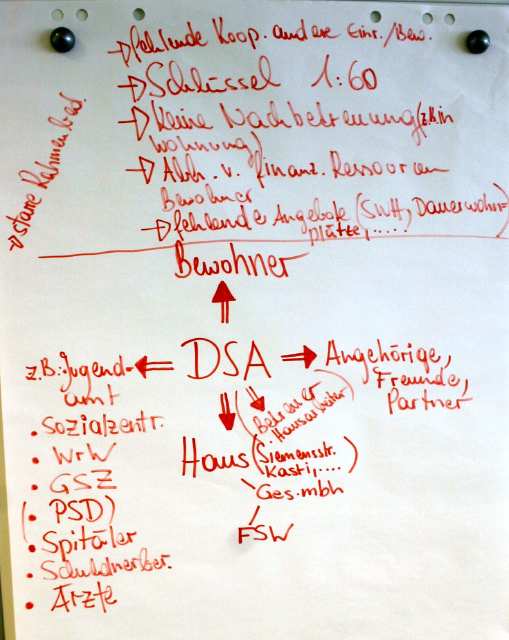 fehlende Koop. andere Einr./Bew.
Schlüssel 1:60
Keine Nachbetreuung (z.B. in
wohnung)
Abh. v. finanz. Ressourcen
Bewohner
fehlende Angebote (SWH, Dauerwohn-
plätze, .....
starre Rahmenbed.
Bewohner
DSA
z.B.: Jugend-
amt
Angehörige,
Freunde,
Partner
(Betreuer
Hausarbeiter)
Haus (Siemensstr.
Kastl, ....)
Ges.mbh
FSW
• Sozialzentr.
• WrW
• GSZ
(• PSD)
• Spitäler
• Schuldnerber.
• Ärzte